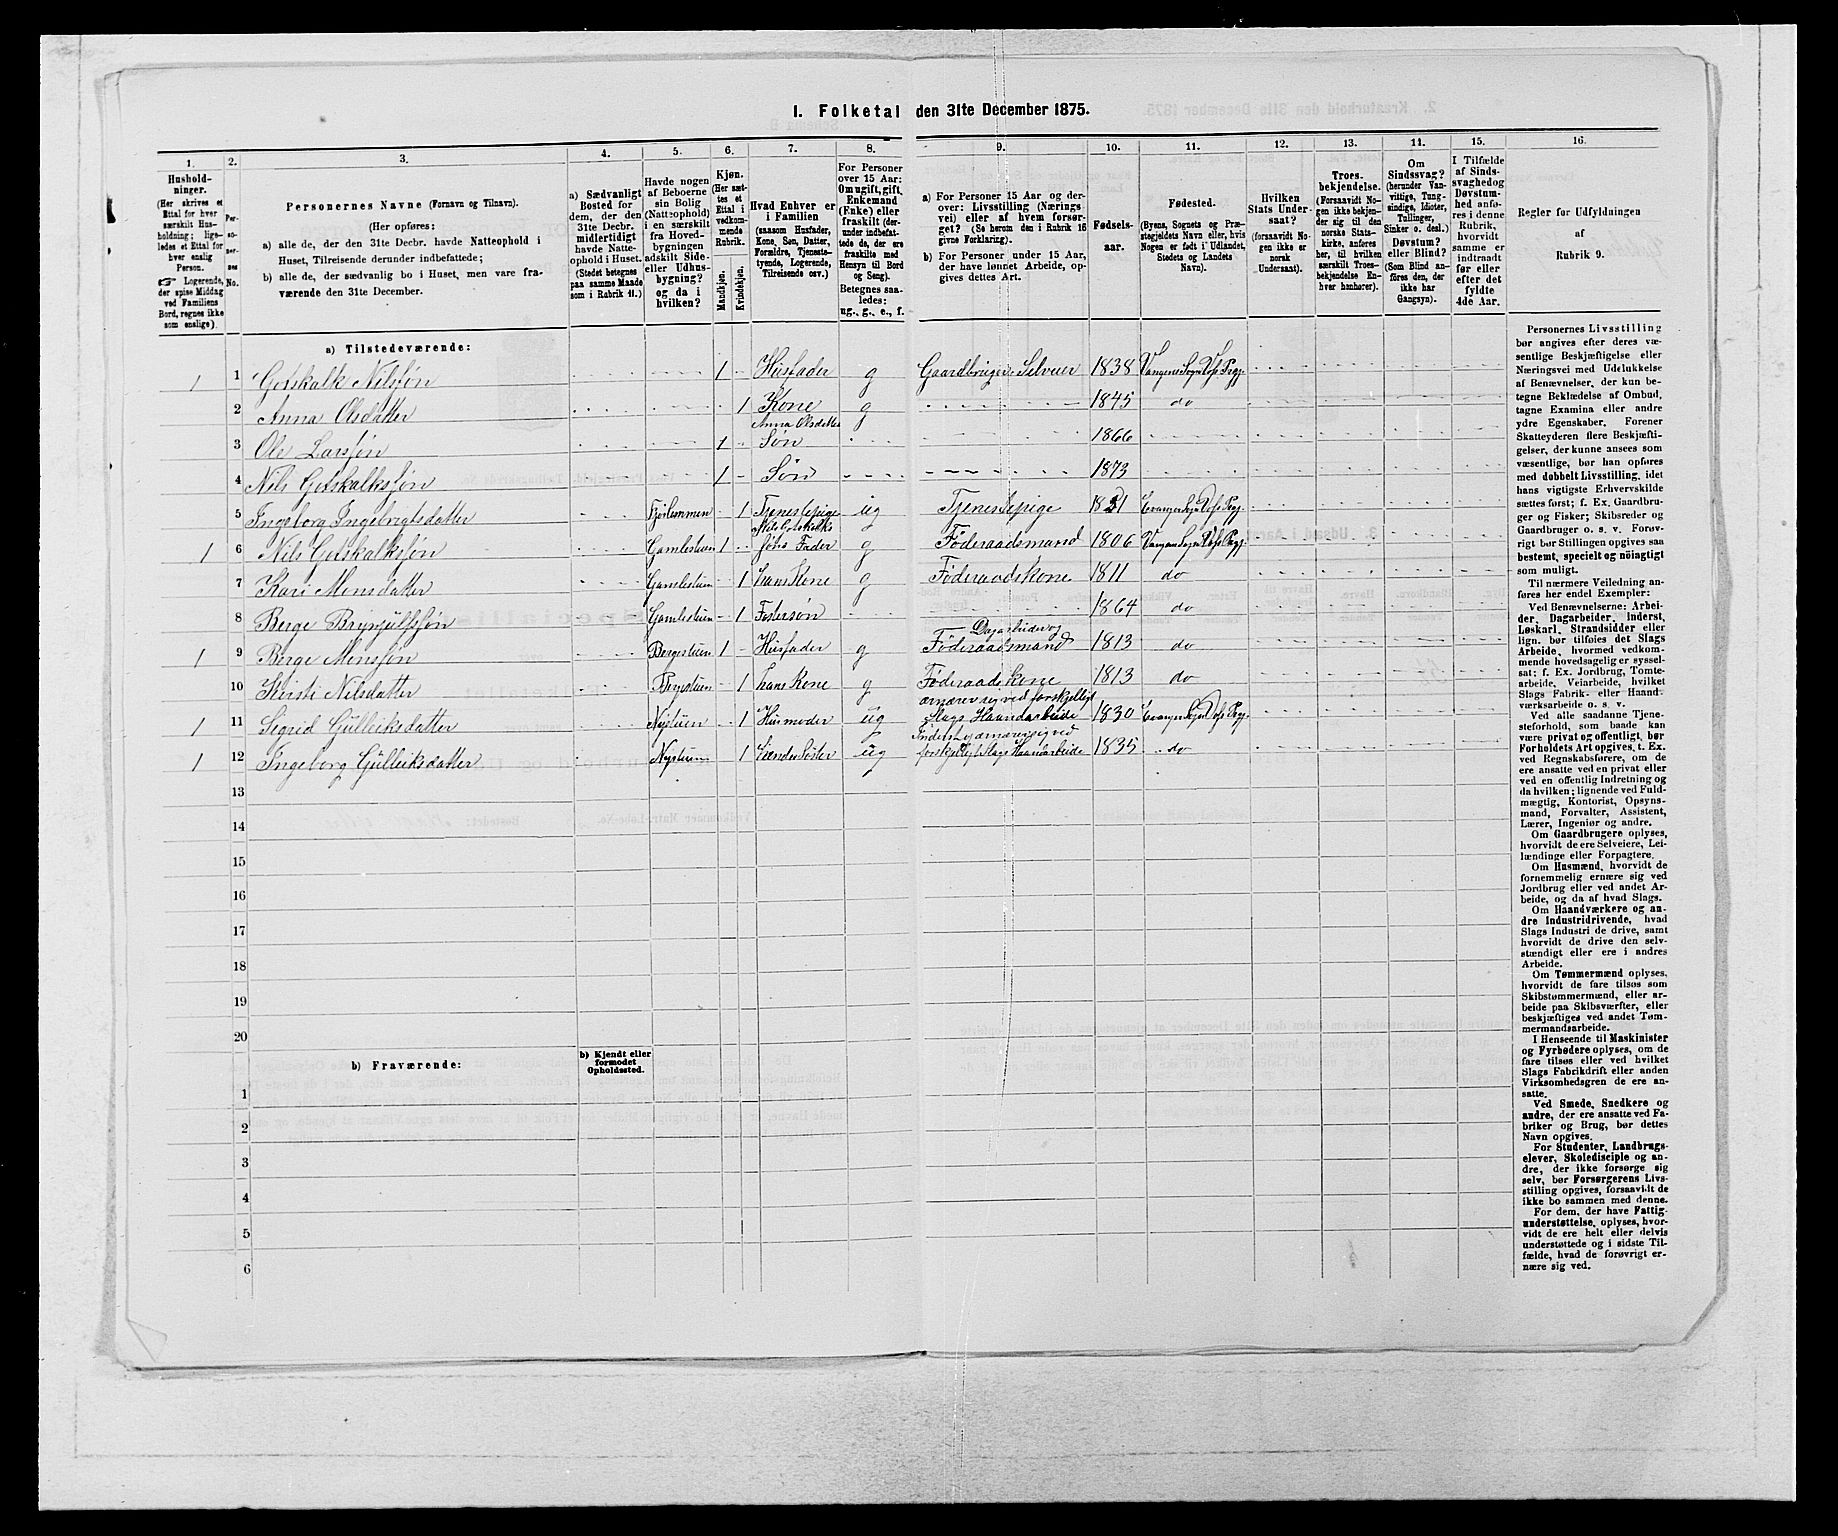 I. Folketal den 31te December 1875.
1. 2. 3. 4. 5. 6. 7. 8. 9. 10. 11. 12. 13. 14. 15. 16.
Hushold-
ninger.
(Her skrives et
Ettal for hver
særskilt Hus-
holdning; lige-
ledes et Ettal for
hver enslig
Person.
☞ Logerende,
der spise Middag
ved Familiens
Bord, regnes ikke
som enslige).
Per-
so-
ner-
nes
No.
Personernes Navne (Fornavn og Tilnavn).
(Her opføres:
a) alle de, der den 31te Decbr. havde Natteophold i
Huset, Tilreisende derunder indbefattede;
b) alle de, der sædvanlig bo i Huset, men vare fra-
værende den 31te December.
a) Sædvanligt
Bosted for
dem, der den
31te Decbr.
midlertidigt
havde Natte-
ophold i Huset.
(Stedet betegnes
paa samme Maade
som i Rubrik 11.)
Havde nogen
af Beboerne
sin Bolig
(Natteophold)
i en særskilt
fra Hoved-
bygningen
adskilt Side-
eller Udhus-
bygning?
og da i
hvilken?
Kjøn.
(Her sæt-
tes et
Ettal i
vedkom-
mende
Rubrik.
Mandkjøn.
Kvindekjøn.
Hvad Enhver er
i Familien
(saasom Husfader,
Kone, Søn, Datter,
Forældre, Tjeneste-
tyende, Logerende,
Tilreisende osv.)
For Personer
over 15 Aar:
Om ugift, gift,
Enkemand
(Enke) eller
fraskilt (der-
under indbefat-
tede de, der ere
fraskilte med
Hensyn til Bord
og Seng).
Betegnes saa-
ledes:
ug., g., e., f.
a) For Personer 15 Aar og der-
over: Livsstilling (Nærings-
vei) eller af hvem forsør-
get? (Se herom den i Rubrik 16
givne Forklaring).
b) For Personer under 15 Aar,
der have lønnet Arbeide, op-
gives dettes Art.
Fødsels-
aar.
Fødested.
(Byens, Sognets og Præ-
stegjeldets Navn eller, hvis
Nogen er født i Udlandet,
Stedets og Landets
Navn).
Hvilken
Stats Under-
saat?
(forsaavidt No-
gen ikke er
norsk
Undersaat).
Troes-
bekjendelse.
(Forsaavidt No-
gen ikke bekjen-
der sig til den
norske Stats-
kirke, anføres
her, til hvilken
særskilt Troes-
bekjendelse En-
hver henhører).
Om
Sindssvag?
(herunder Van-
vittige, Tung-
sindige, Idioter,
Tullinger,
Sinker o. desl.)
Døvstum?
eller Blind?
(Som Blind an-
føres den, der
ikke har
Gangsyn).
I Tilfælde
af Sinds-
svaghed og
Døvstum-
hed anfø-
res i denne
Rubrik,
hvorvidt
samme er
indtraadt
før eller
efter det
fyldte
4de Aar.
Regler for Udfyldningen
af
Rubrik 9.
a) Tilstedeværende:
1 1 Gotskalk Nilssøn 1 Husfader g Gaardbruger Selveier 1838 Vangens Sogn Vos Prgj.
2 Anna Olsdatter 1 Kone g 1845 do
3 Ole Larssøn 1 Anna Olsdatters Søn 1866
4 Nils Gotskalkssøn 1 Søn 1873
5 Ingeborg Ingebrigtsdatter 1 Tjenestepige ug Tjenestepige Evanger Sogn Vos Prgj.
1 6 Nils Gotskalkssøn Gamlestuen 1 Nils Gotskalks søns Fader g Föderaadsmand 1806 Vangens Sogn Vos Prgj.
7 Kari Monsdatter Gamlestuen 1 hans Kone g Föderaadskone 1811 do
8 Berge Brynjulfssøn Gamlestuen 1 Fostersøn 1864 do
1 9 Berge Monssøn Bergestuen 1 Husfader g Dagarbeider og Föderaadsmand 1813 do
10 Kirsti Nilsdatter Bergestuen 1 hans Kone g Föderaadskone 1813 do
1 11 Sigrid Gulleiksdatter Nystuen 1 Husmoder ug ernærer sig ved forskjelligt Slags Haandarbeide 1830 Evanger Sogn Vos Prgj.
1 12 Ingeborg Gulleiksdatter Nystuen 1 hendes Søster ug Inderst, ernærer sig ved forskjelligt Slags Haandarbeide 1835 do
13
14
15
16
17
18
19
20
b) Fraværende:
b) Kjendt eller
formodet
Opholdssted.
1
2
3
4
5
6
Personernes Livsstilling
bør angives efter deres væ-
sentlige Beskjæftigelse eller
Næringsvei med Udelukkelse
af Benævnelser, der kun be-
tegne Beklædelse af Ombud,
tagne Examina eller andre
ydre Egenskaber. Forener
Skatteyderen flere Beskjæfti-
gelser, der kunne ansees som
væsentlige, bør han opføres
med dobbelt Livsstilling, idet
hans vigtigste Erhvervskilde
sættes først; f. Ex. Gaardbru-
ger og Fisker; Skibsreder og
Gaardbruger o. s. v. Forøv-
rigt bør Stillingen opgives saa
bestemt, specielt og nöiagtigt
som muligt.
Til nærmere Veiledning an-
føres her endel Exempler:
Ved Benævnelserne: Arbei-
der, Dagarbeider, Inderst,
Løskarl, Strandsidder eller
lign. bør tilføies det Slags
Arbeide, hvormed vedkom-
mende hovedsagelig er syssel-
sat; f. Ex. Jordbrug, Tomte-
arbeide, Veiarbeide, hvilket
Slags Fabrik- eller Haand-
værksarbeide o. s. v.
Ved alle saadanne Tjene-
steforhold, som baade kan
være privat og offentligt, bør
Forholdets Art opgives, t. Ex.
ved Regnskabsførere, om de
ere ansatte ved en privat eller
ved en offentlig Indretning og
da hvilken; lignende ved Fuld-
mægtig, Kontorist, Opsyns-
mand, Forvalter, Assistent,
Lærer, Ingeniør og andre.
Om Gaardbrugere oplyses,
hvorvidt de ere Selveiere, Lei-
lændinge eller Forpagtere.
Om Husmænd, hvorvidt de
fornemmelig ernære sig ved
Jordbrug eller ved andet Ar-
beide, og da af hvad Slags.
Om Haandværkere og an-
dre Industridrivende, hvad
Slags Industri de drive, samt
hvorvidt de drive den selv-
stændigt eller ere i andres
Arbeide.
Om Tømmermænd oplyses,
hvorvidt de fare tilsøs som
Skibstømmermænd, eller ar-
beide paa Skibsværfter, eller
beskjæftiges ved andet Tøm-
mermandsarbeide.
I Henseende til Maskinister
og Fyrbødere oplyses, om de
fare tilsøs eller ved hvilket
Slags Fabrikdrift eller anden
Virksomhedsgren de ere an-
satte.
Ved Smede, Snedkere og
andre, der ere ansatte ved Fa-
briker og Brug, bør dettes
Navn opgives.
For Studenter, Landbrugs-
elever, Skoledisciple og an-
dre, der ikke forsørge sig
selv, bør Forsørgerens Livs-
stilling opgives, forsaavidt de
ikke bo sammen med denne.
For dem, der have Fattig-
understøttelse, oplyses, hvor-
vidt de ere helt eller delvis
understøttede og i sidste Til-
fælde, hvad de forøvrigt er-
nære sig ved.